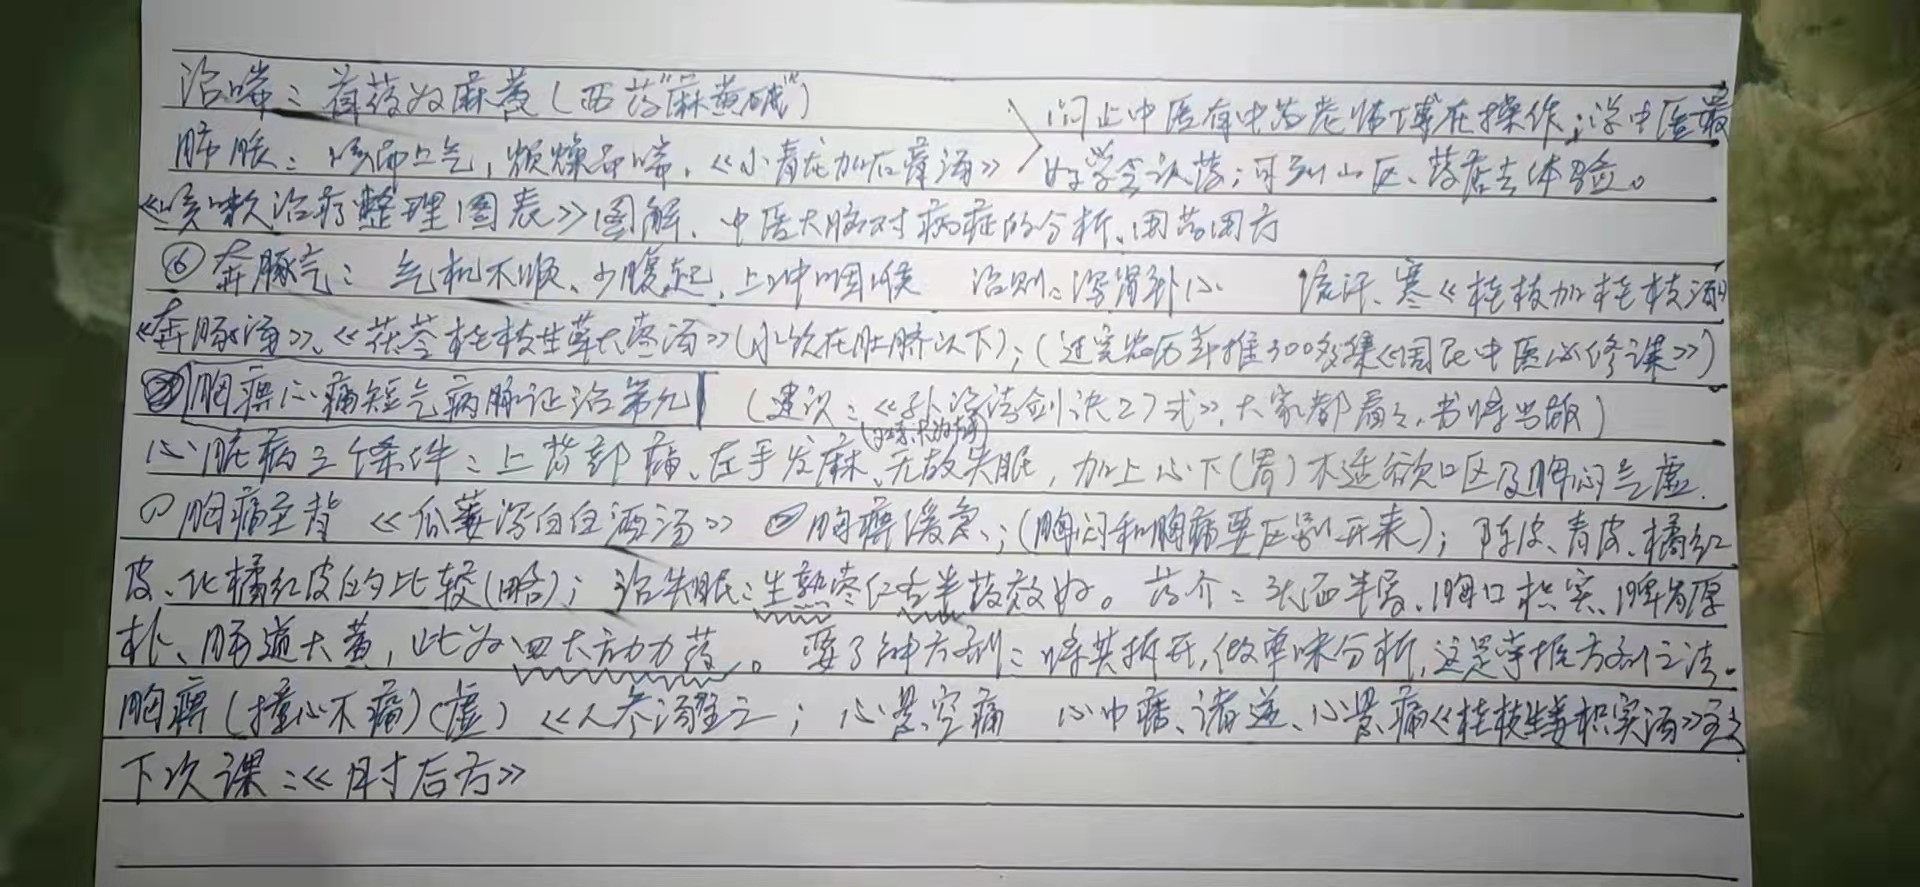 治喘：首药为麻黄（西药"麻黄碱"）
问止中医有中药老师傅在操作；学中医最
肺胀：咳而上气，烦燥而喘，《小青龙加石膏汤》
好学会认药；可到山区、药店去体验。
《咳嗽治疗整理图表》图解、中医大脑对病症的分析、用药用方
⑥奔豚气：气机不顺、少腹起、上冲咽喉 治则：泻肾补心 汗、寒《桂枝加桂枝汤》
《奔豚汤》、《茯苓桂枝生草大枣汤》（水饮在肚脐以下）；（300多集《国民中医必修课》）
胸痹心痛短气病脉证治第九 （建议：《针法剑诀27式》，大家都看之，书将出版）
心脏病三个条件：上背部痛、左手发麻、无故失眠，加上心下（胃）及胸闷气虚.
①胸痛至背《瓜蒌泻白白酒汤》 ②胸痹缓急；（胸闷和胸痛要区别开来）；陈皮、青皮、橘红
皮、化橘红皮的比较（略）；治失眠：生熟枣仁各半药效好。药介：头面半夏、胸口枳实、脾胃厚
朴、肠道大黄，此为四大动力药。要了解方剂：将其拆开，做单味分析，这是掌握方剂之法。
胸痹（撞心不痛）（虚）《人参汤》主之；心悬空痛 心中痞、诸逆、心悬痛《桂枝生姜枳实汤》主之
下次课：《肘后方》